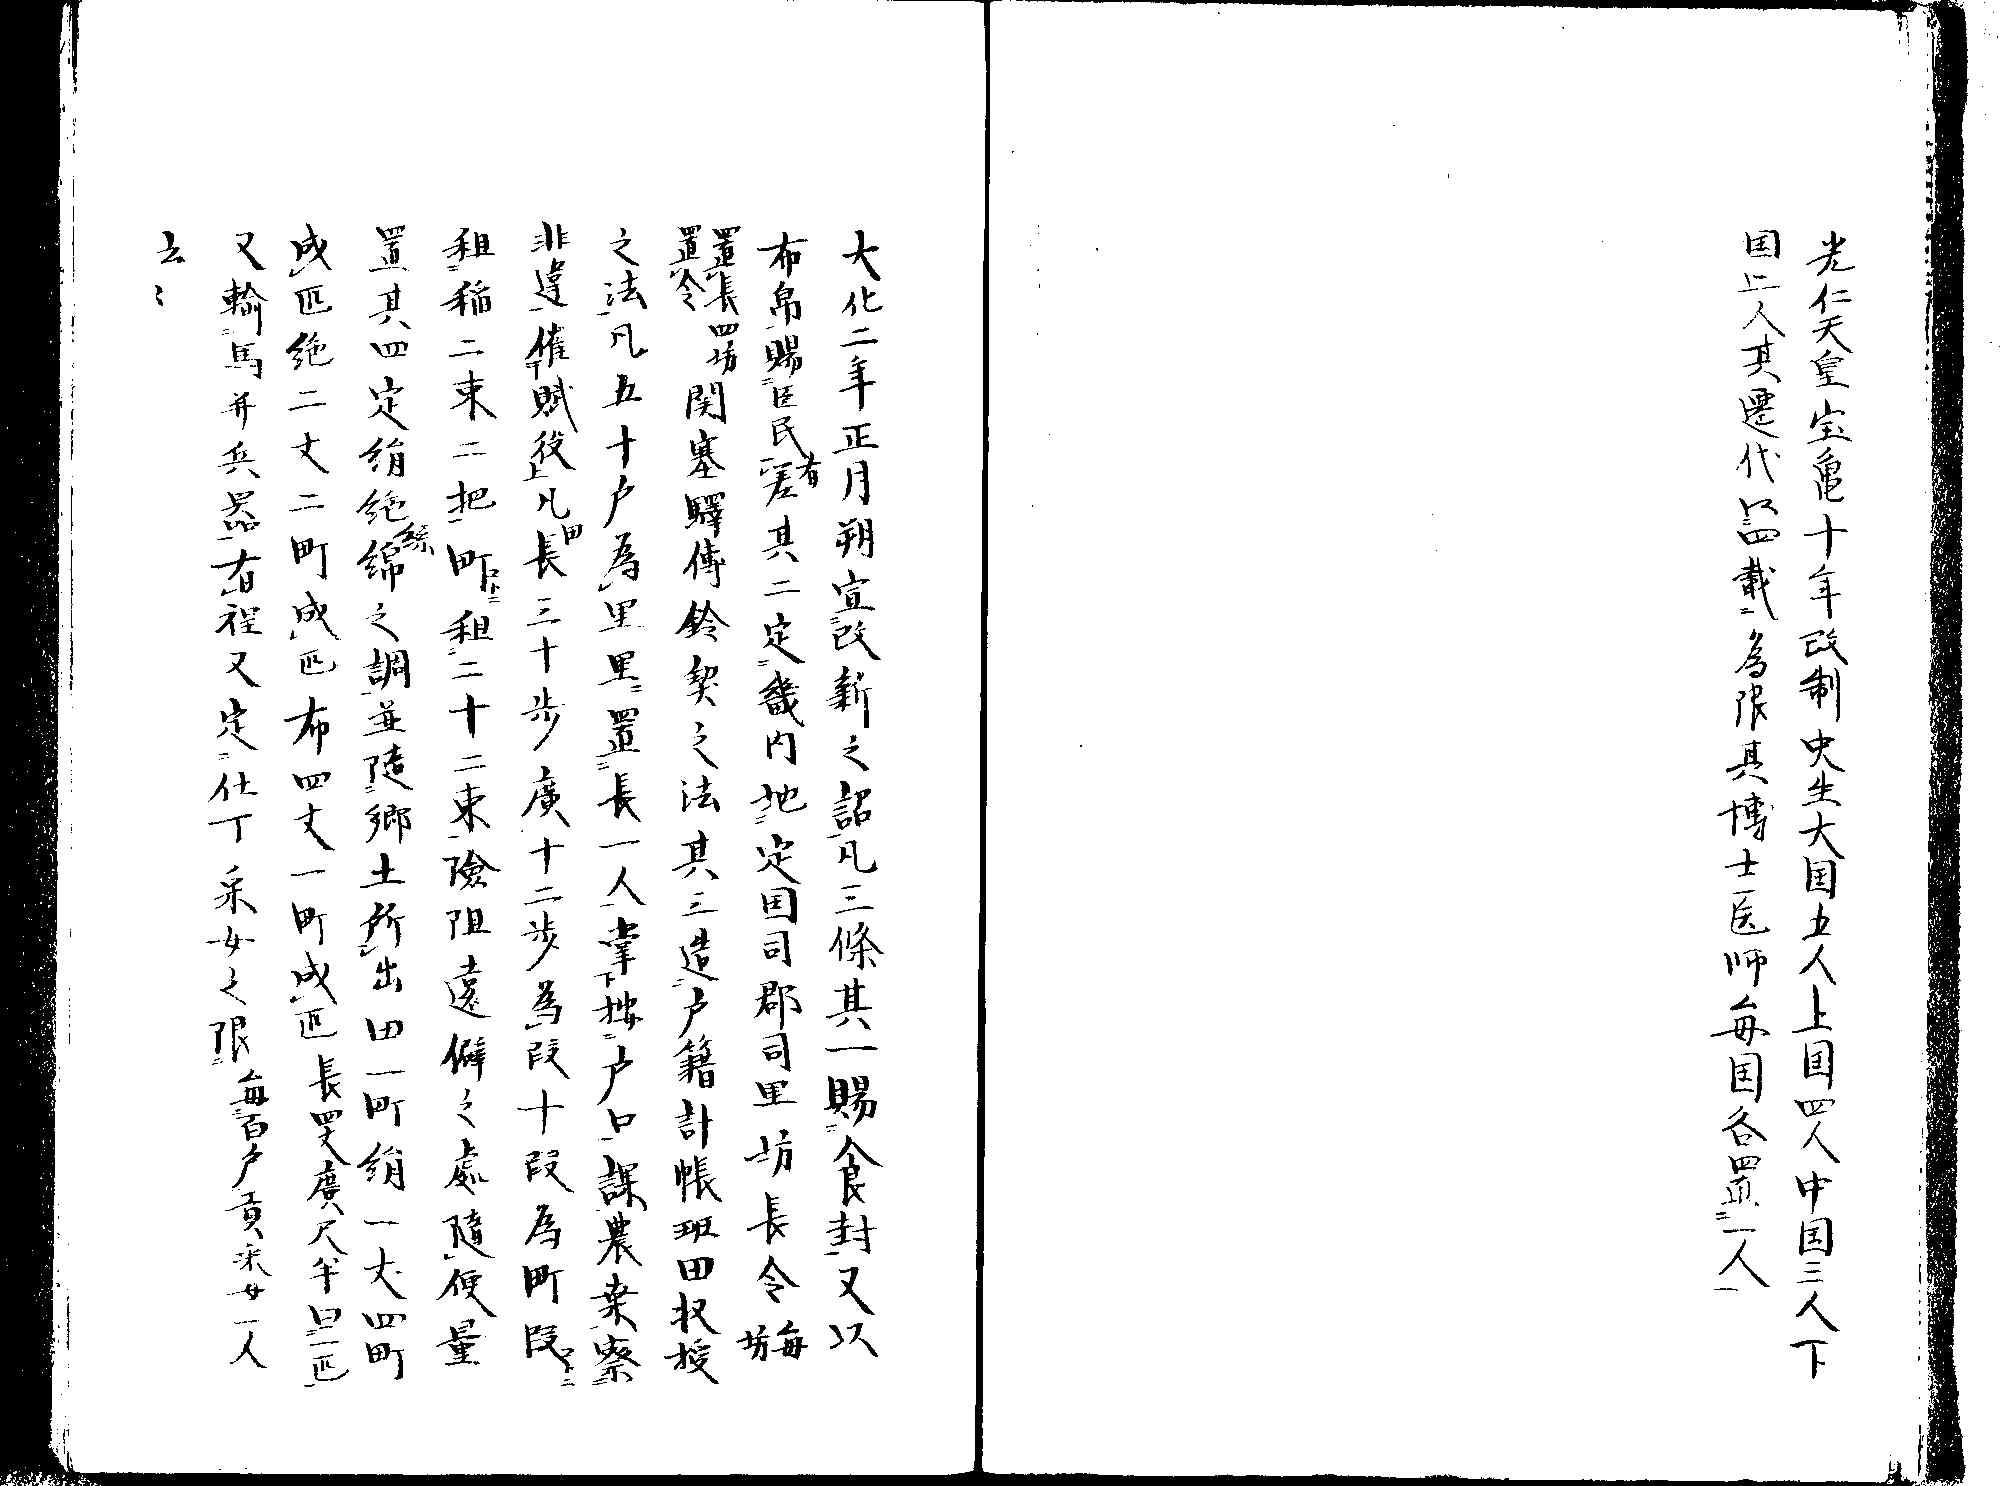 光仁天皇宝亀十年改制史生大国五人上国四人中国三人下
国二人其遷代以四載為限其博士医师毎国各置一人
大化二年正月朔宣改新之詔凡三條其一賜食封又以
布帛賜臣民有差其二定畿内地定国司郡司里坊長令毎坊
置長四坊置令
関塞驛傳鈴契之法其三造户籍計帳班田収授
之法凡五十户為里里置長一人掌按户口課農桒察
非違催賦役凡田長三十步廣十二步為段十段為町段
租稲二束二把町租二十二束險阻遠僻之處隨便量
置其四定絹絁絲綿之調並随鄉土所出田一町絹一丈四町
成匹絁二丈二町成匹布四丈一町成匹長四丈廣尺半曰一匹
又輸馬并兵器有程又定仕丁采女之限毎百户貢采女一人
云〻